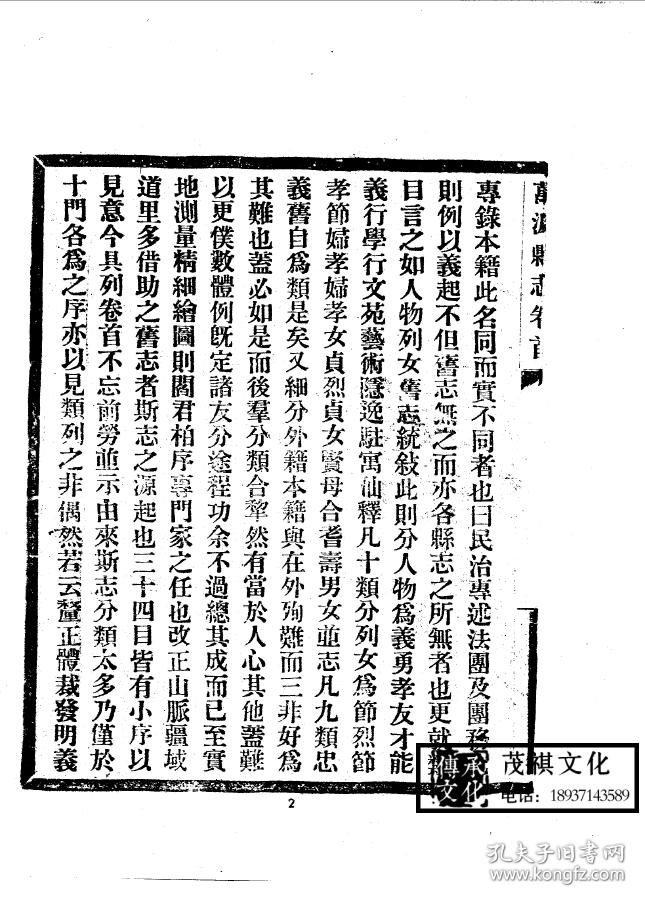 萬源縣志卷首
專錄本籍此名同而實不同者也曰民治專述法團及團務
則例以義起不但舊志無之而亦各縣志之所無者也更就
目言之如人物列女舊志統敍此則分人物爲義勇孝友才能
義行學行文苑藝術隱逸駐寓仙釋凡十類分列女爲節烈節
孝節婦孝婦孝女貞烈貞女賢母合耆壽男女並志凡九類忠
義舊自爲類是矣又細分外籍本籍與在外殉難而三非好爲
其難也蓋必如是而後羣分類合犂然有當於人心其他蓋難
以更僕數體例旣定諸友分途程功余不過總其成而已至實
地測量精細繪圖則閻君柏序專門家之任也改正山脈疆域
道里多借助之舊志者斯志之源起也三十四目皆有小序以
見意今具列卷首不忘前勞並示由來斯志分類太多乃僅於
十門各爲之序亦以見類列之非偶然若云釐正體裁發明義
2
傳承文化
茂祺文化
电话：18937143589
孔夫子旧书网
www.kongfz.com